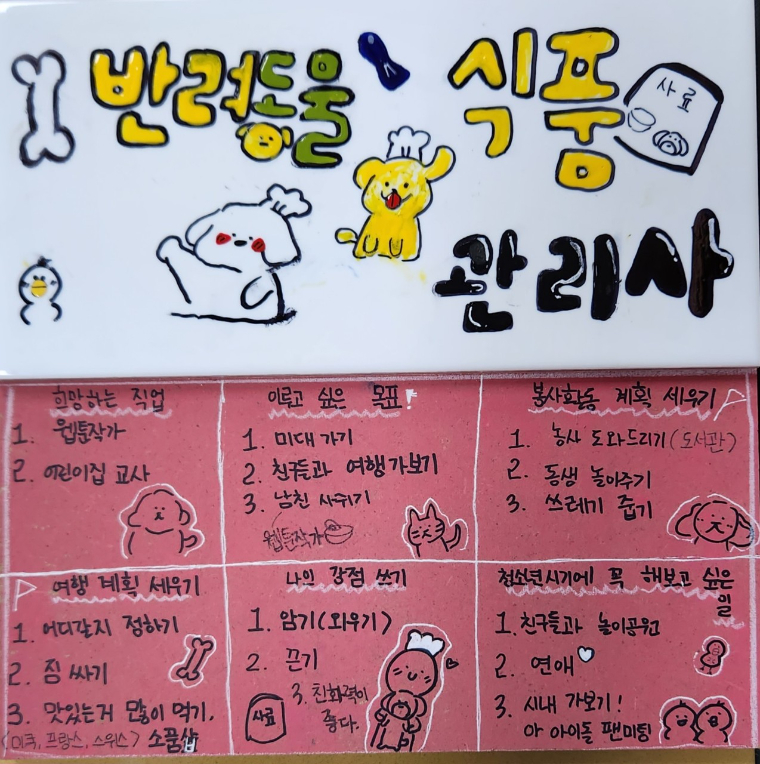 반려동물 식품
사료
관리사
희망하는 직업
1. 웹툰작가
2. 어린이집 교사
이루고 싶은 목표!
1. 미대 가기
2. 친구들과 여행가보기
3. 남친 사귀기
웹툰작가
봉사활동 계획 세우기
1. 농사 도와드리기(도서관)
2. 동생 놀아주기
3. 쓰레기 줍기
여행 계획 세우기
1. 어디갈지 정하기
2. 짐 싸기
3. 맛있는거 많이 먹기.
(미쿡, 프랑스, 스위스) 소품샵
나의 강점 쓰기
1. 암기(외우기)
2. 끈기
3. 친화력이
좋다.
사료
청소년시기에 꼭 해보고 싶은
일
1. 친구들과 놀이공원
2. 연애
3. 시내 가보기!
아 아이돌 팬미팅